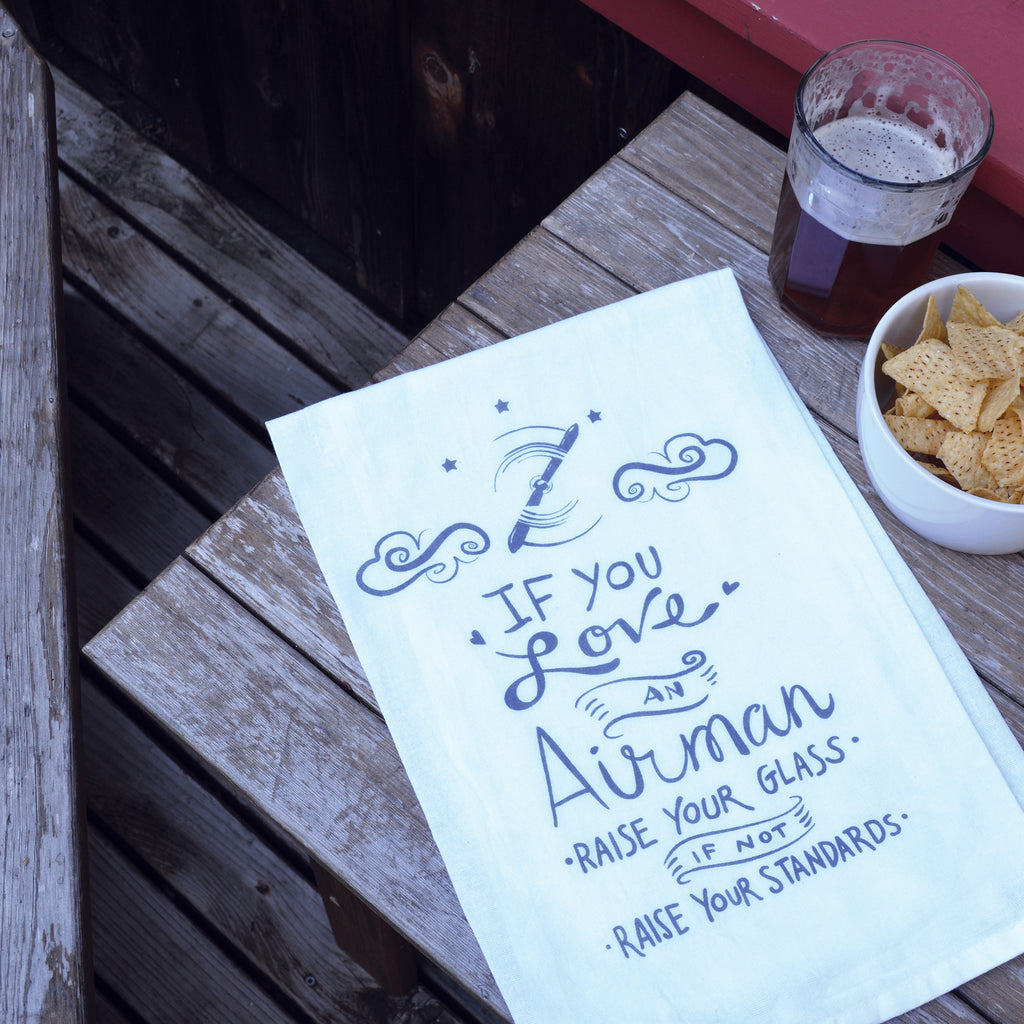 IF YOU
Love
AN
Airman
·RAISE YOUR GLASS·
IF NOT
·RAISE YOUR STANDARDS·